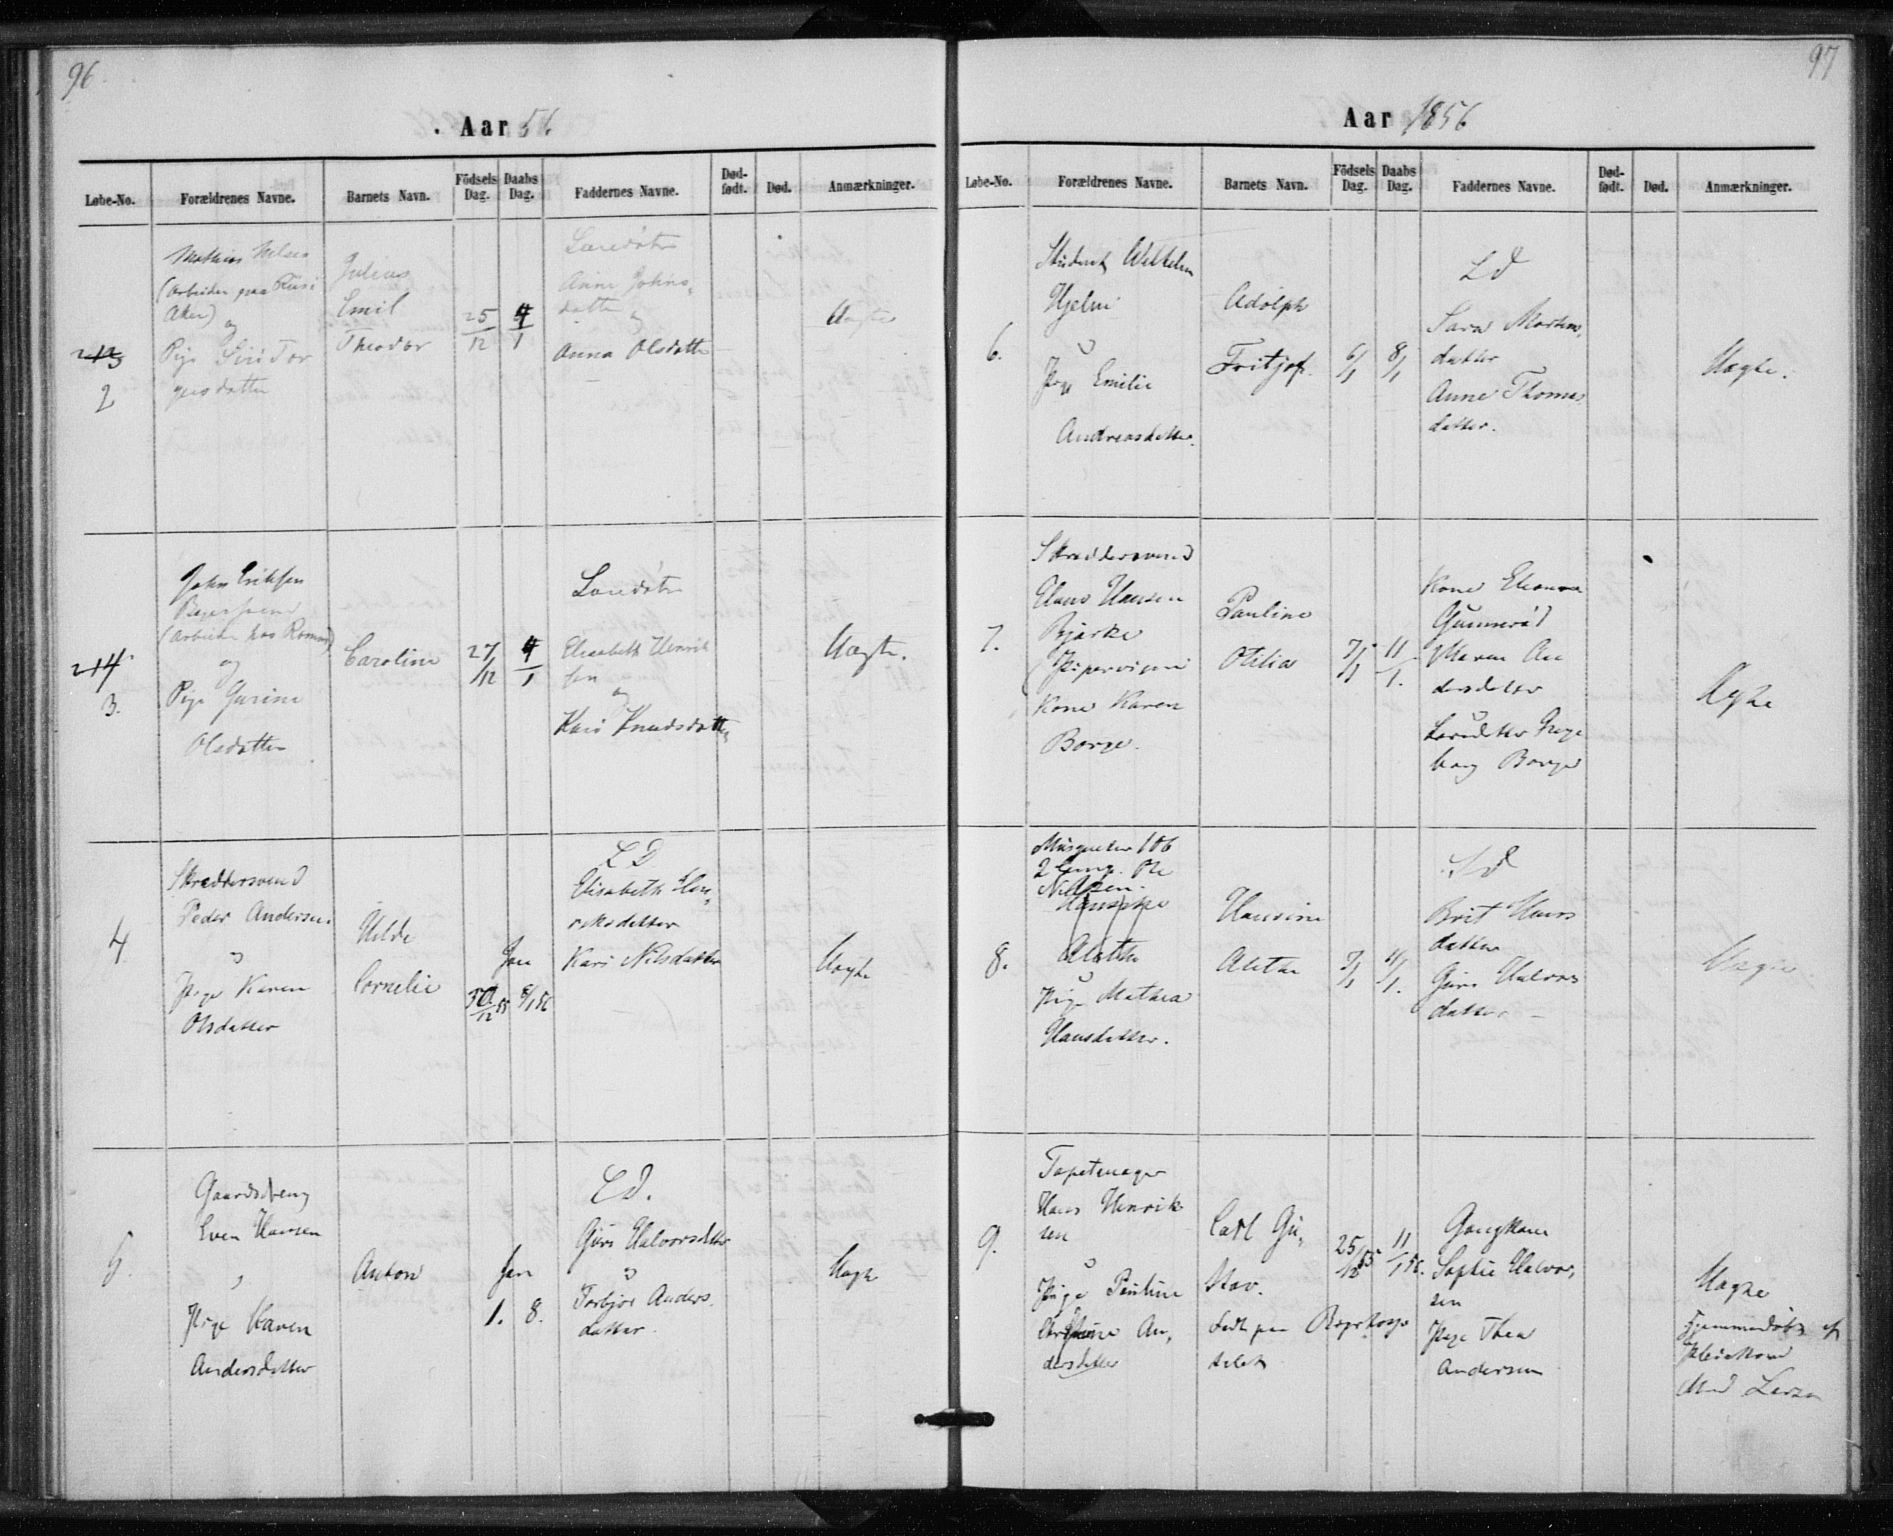 96.
. Aar 56.
Løbe-No. Forældrenes Navne. Barnets Navn. Födsels Dag. Daabs Dag. Faddernes Navne. Død-født. Død. Anmærkninger.
213
2
Mathias Nilsen
(Arbeider paa
Aker)
og
Pige Siri Tor
gersdatter
Julius
Emil
Theodor
25/12
4/1
Anne Johns-
datter og
Anna Olsdatter
Uægte
214
3.
John Eriksen
(Arbeider hos
og
Pige Gurine
Olsdatter
Caroline
27/12
4/1
Elisabeth Henrik
sen
og
Kari Knudsdatter
Uægte.
4
Skreddersvend
Peder Andersen.
o
Pige Karen
Olsdatter
Hilda
Cornelie
30/12 55
Jan
6/1 56
L D
Elisabeth Hen-
riksdatter
Kari Nilsdatter
Uægte
5.
Gaardsdreng
Even Hansen
Pige Karen
Andersdatter
Anton
Jan
1. 8.
L D.
Guri Halvorsdatter
o
Torbjør Anders.
datter.
Uægte
97
Aar 1856
Løbe-No. Forældrenes Navne. Barnets Navn. Födsels Dag. Daabs Dag. Faddernes Navne. Død-født. Død. Anmærkninger.
6.
Student Wilhelm
Hjelm
o
Pige Emilie
Andreasdatter.
Adolph
Fritjof.
6/1
8/1
L D
Sara Martins,
datter
Anne Thomas
datter.
Uægte.
7.
Skreddersvend
Hans Hansen
Bjarke
Pipervigen
Kone Karen
Borge.
Pauline
Otilia
7/1
11/1.
Kone Eleonora
Gunnerød
Maren An
dersdatter
Borge
Ægte
8.
Musqueteer 106
2 Comp. Ole
Nilsen.
Alethe
o
Pige Mathea
Hansdatter.
Hansine
Alethe
7/1
11/1.
L D
Brit Hans
datter
Guri Halvors
datter.
Uægte
9.
Tapetmager
Hans Henrik
sen
o
Pige Pauline
An,
dersdatter
Carl Gu,
stav.
født paa
25/12 55
11/1 56.
Gangkone
Sophie Halvor,
sen
Pige Thea
Andersen
Uægte
Hjemmedøbt af
Mad Larsen